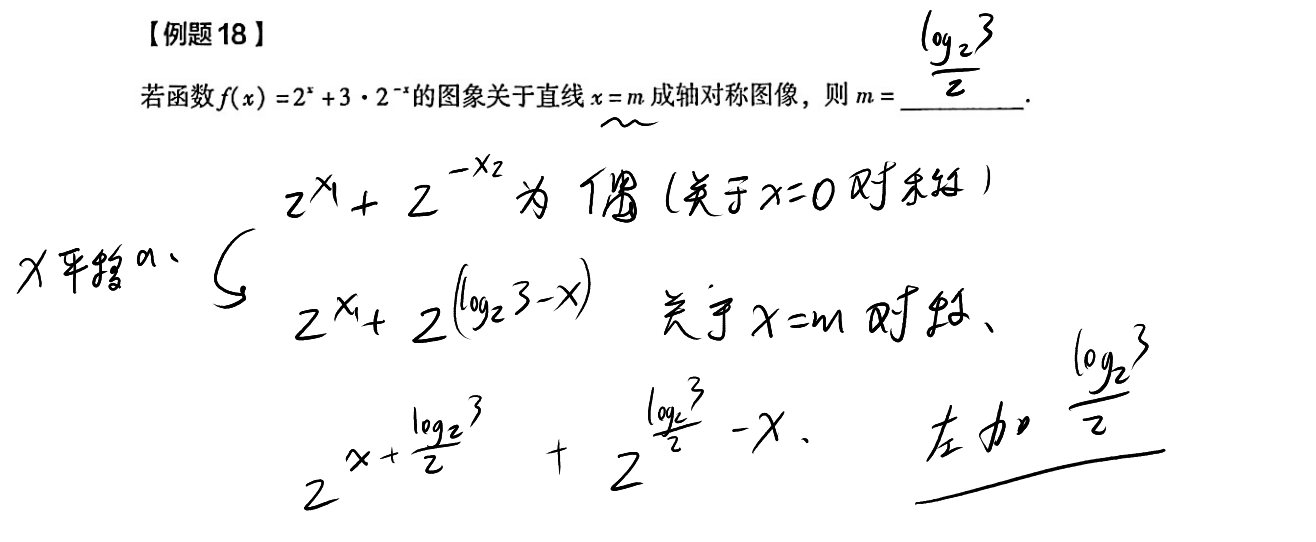 【例题18】
若函数f(x)=2ˣ+3·2⁻ˣ的图象关于直线x=m成轴对称图像，则m= log₂3/2 .
2^{x₁}+2^{-x₂} 为偶(关于x=0对称)
x平移a、
2^{x₁}+2^{(log₂3-x)} 关于x=m对称、
2^{x+log₂3/2} + 2^{log₂3/2-x}. 左加 log₂3/2